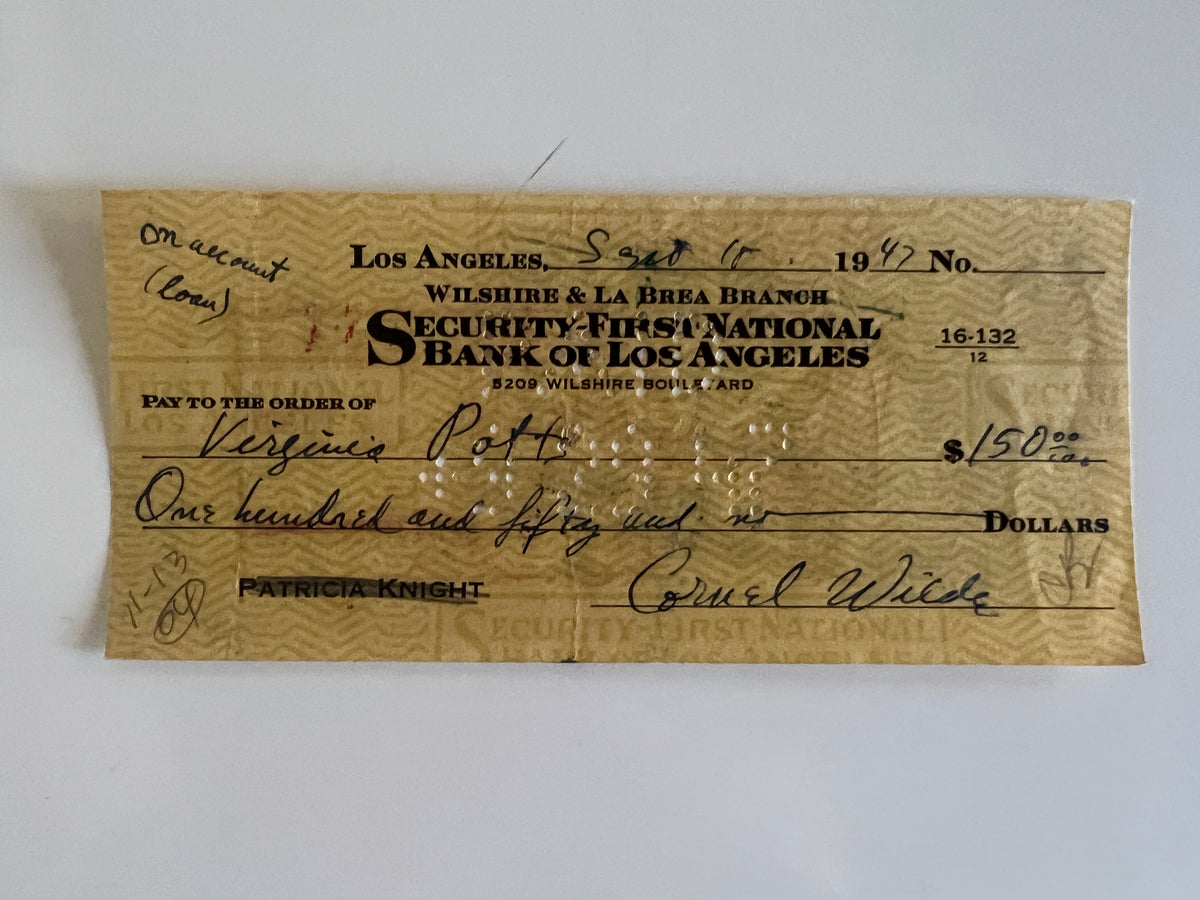 on account
(loan)
LOS ANGELES, Sept 10. 1947 No.
WILSHIRE & LA BREA BRANCH
SECURITY-FIRST NATIONAL
BANK OF LOS ANGELES
16-132
12
5209 WILSHIRE BOULEVARD
PAY TO THE ORDER OF
Virginia Potts $150 00/100
One hundred and fifty and no DOLLARS
PATRICIA KNIGHT
Cornel Wilde
11-13
FIRST NATIONAL
SECURITY-FIRST NATIONAL